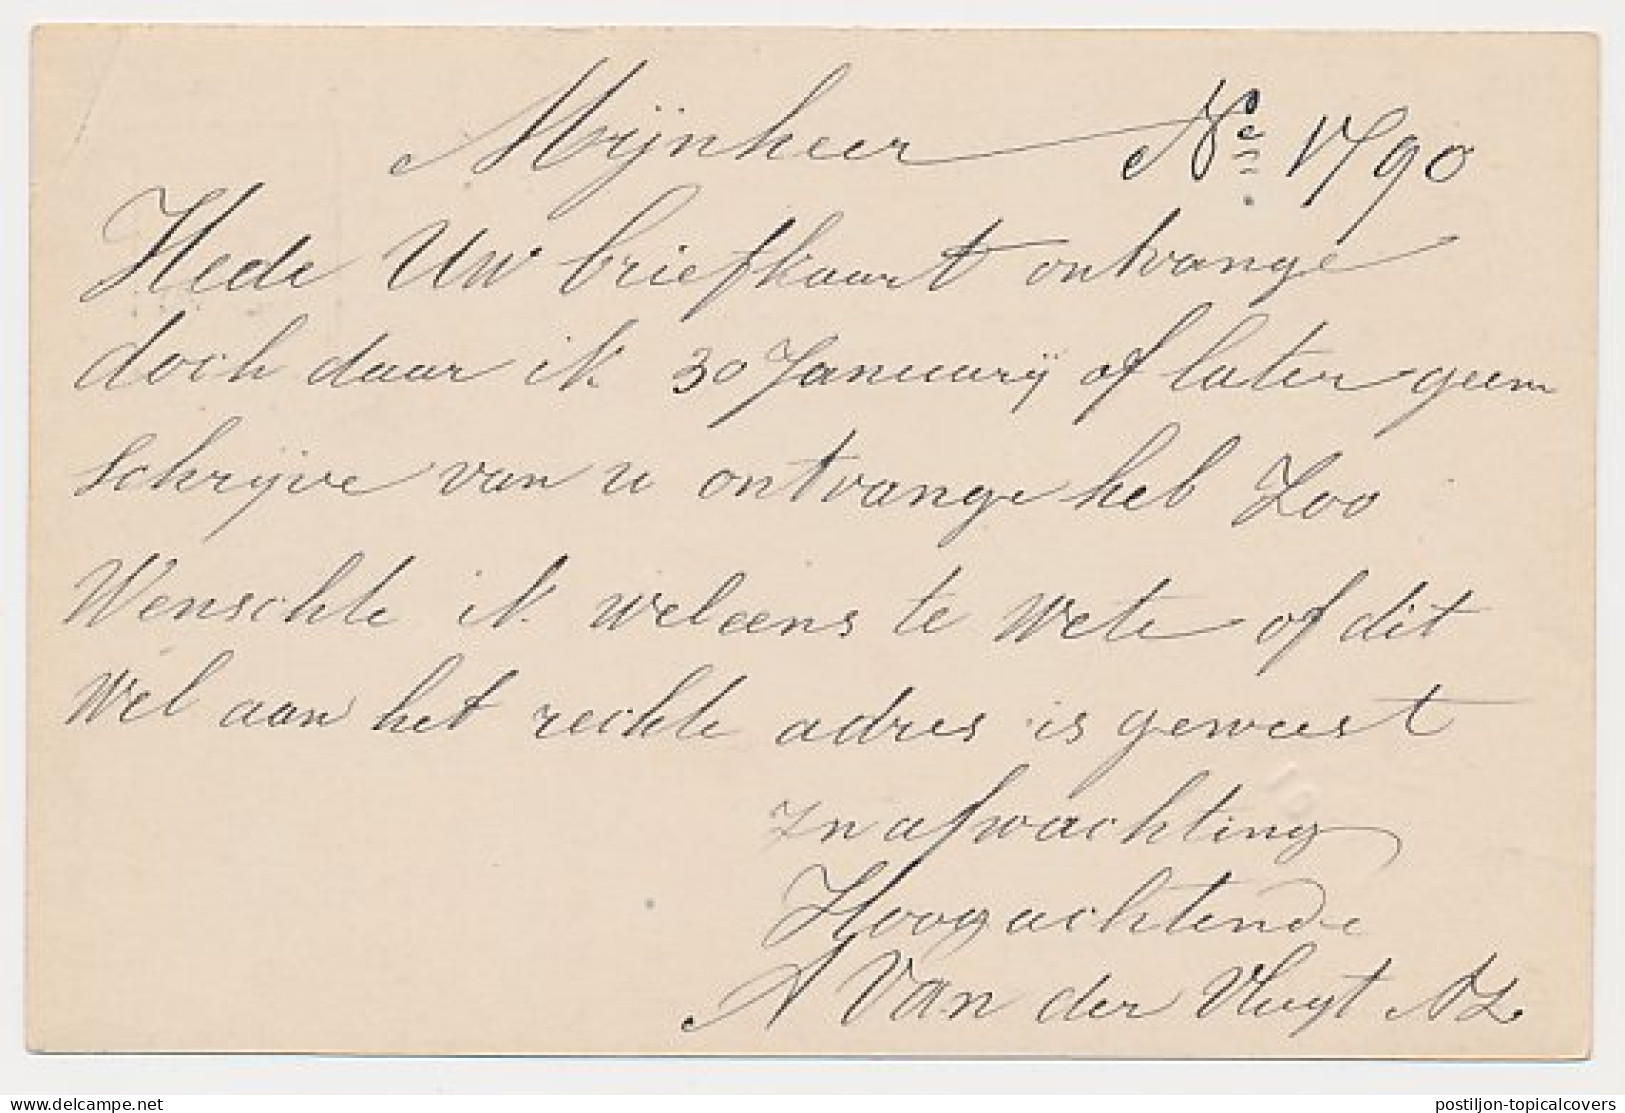 Mijnheer No 1790
Hede Uw briefkaart ontvange
doch daar ik 30 Januarij of later geen
schrijve van u ontvange heb Zoo
Wenschte ik weleens te wete of dit
Wel aan het rechte adres is geweest
In afwachting
Hoogachtende
A Van der Vlugt AZ
delcampe.net
postiljon-topicalcovers